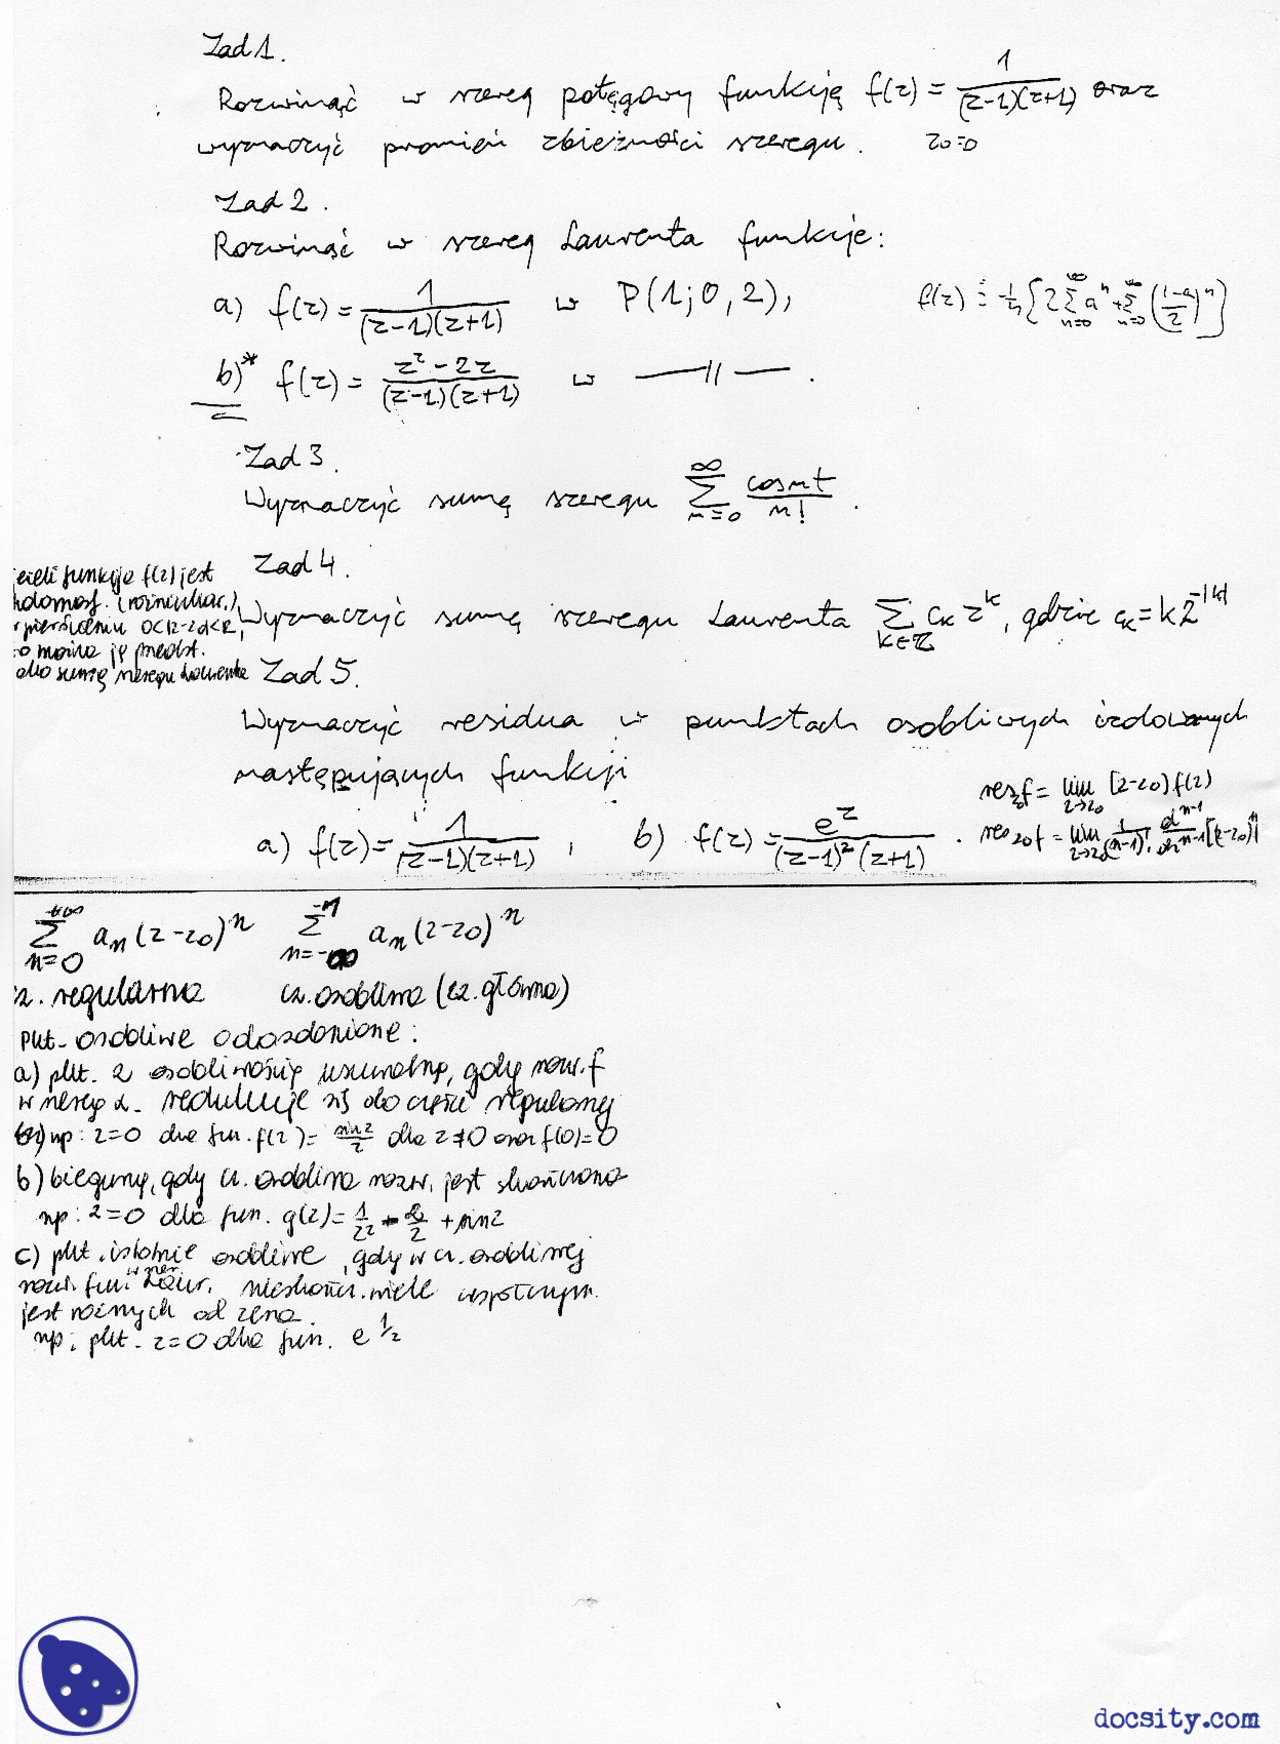 Zad 1.
Rozwinąć w szereg potęgowy funkcję f(z) = 1/((z-1)(z+1)) oraz
wyznaczyć promień zbieżności szeregu. z0=0
Zad 2.
Rozwinąć w szereg Laurenta funkcje:
a) f(z) = 1/((z-1)(z+1)) w P(1;0,2),
b)* f(z) = (z²-2z)/((z-1)(z+1)) w —||— .
Zad 3.
Wyznaczyć sumę szeregu ∑_{n=0}^{∞} cos nt / n! .
Zad 4.
Wyznaczyć sumę szeregu Laurenta ∑_{k∈ℤ} c_k z^k, gdzie c_k = k2^{-|k|}
funkcja f(z) jest
pierścieniu 0<|z-z0|<R,
o można ją przedst.
ako sumę szeregu Laurenta
Zad 5.
Wyznaczyć residua w punktach osobliwych izolowanych
następujących funkcji
a) f(z) = 1/((z-1)(z+1)), b) f(z) = e^z/((z-1)²(z+1)).
res_{z0} f = lim_{z→z0} (z-z0)f(z)
res_{z0} f = lim_{z→z0} 1/(n-1)! d^{n-1}/dz^{n-1} [(z-z0)^n
∑_{n=0}^{+∞} a_n(z-z0)^n ∑_{n=-∞}^{-1} a_n(z-z0)^n
cz. regularna cz. osobliwa (cz. główna)
pkt. osobliwe odosobnione:
a) pkt. z osobliwością usuwalną, gdy rozw. f
w szereg L. redukuje się do części regularnej
np: z=0 dla fun. f(z) = sin z/z dla z≠0 oraz f(0)=0
b) bieguny, gdy cz. osobliwa rozw. jest skończona
np: z=0 dla fun. g(z) = 1/z² - 2/z + sin z
c) pkt. istotnie osobliwe, gdy w cz. osobliwej
rozw. fun. w szer. Laur. nieskończ. wiele współczyn.
jest różnych od zera.
np: pkt. z=0 dla fun. e^{1/z}
docsity.com